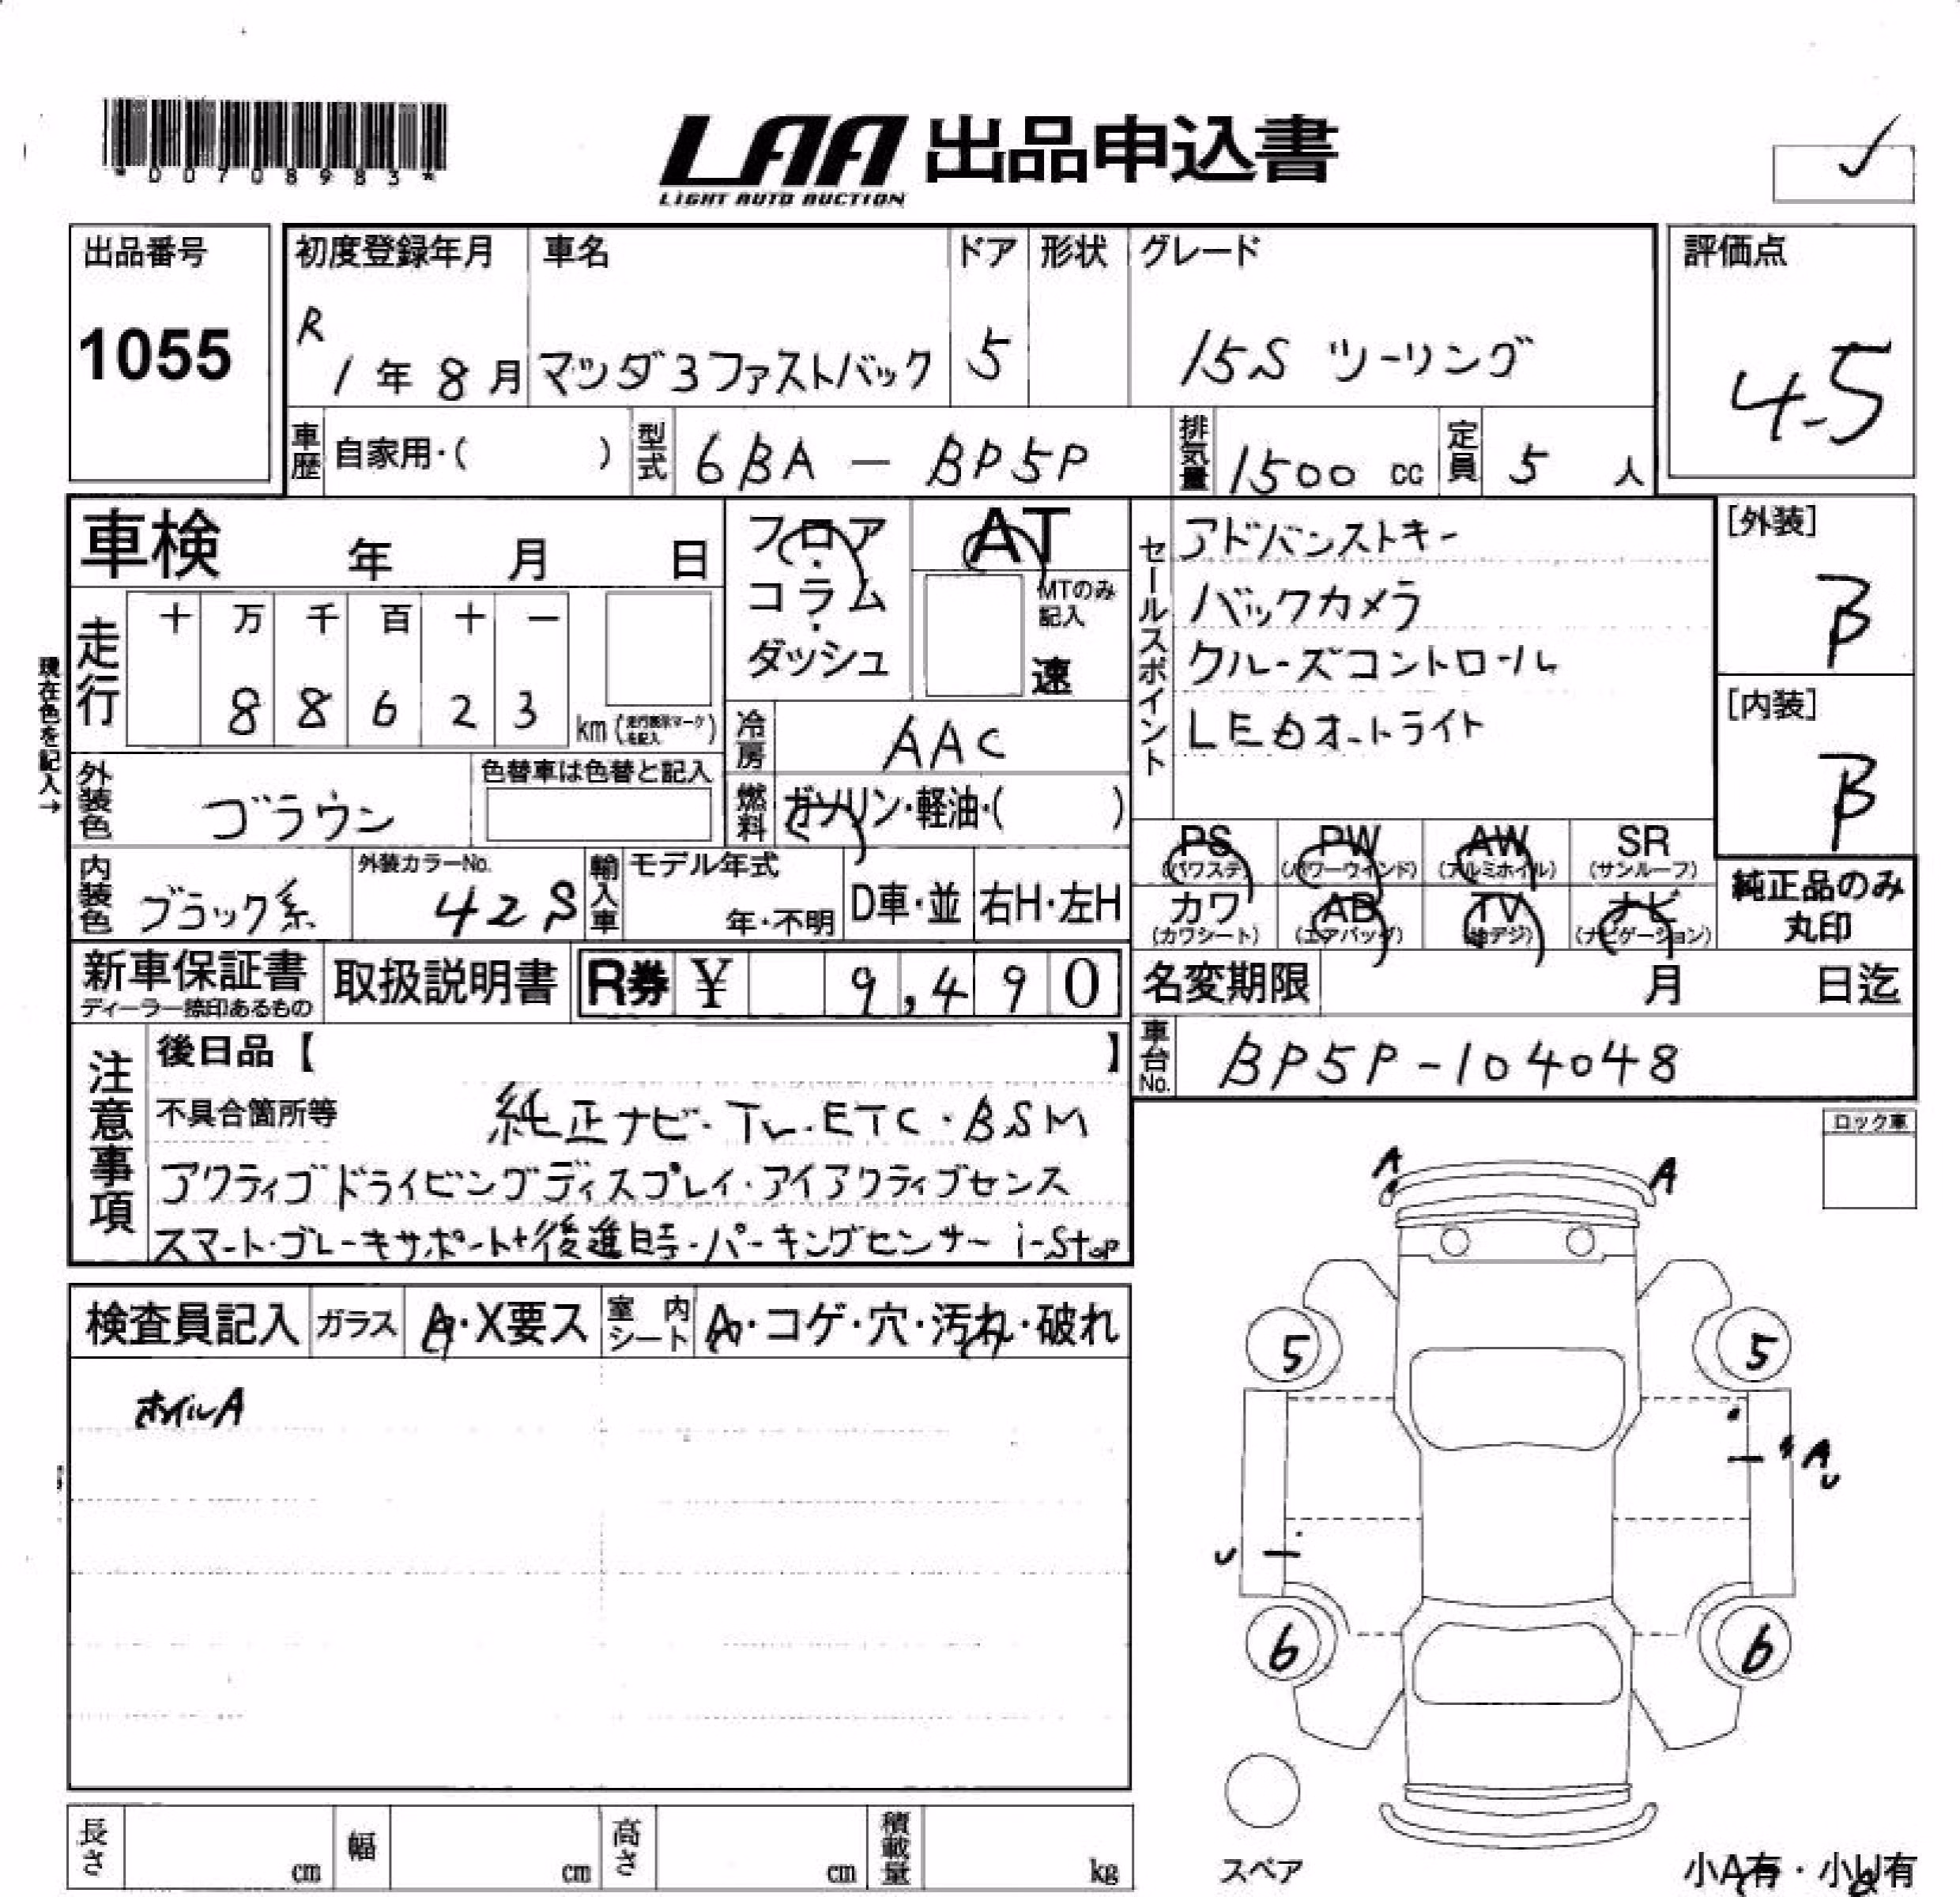 *00708983*
LAA 出品申込書
LIGHT AUTO AUCTION
出品番号
1055
初度登録年月 車名 ドア 形状 グレード
R
1年8月 マツダ3ファストバック 5 15S ツーリング
評価点
4.5
車歴 自家用・( ) 型式 6BA-BP5P 排気量 1500cc 定員 5人
車検 年 月 日
フロア・コラム・ダッシュ
AT
MTのみ記入
速
セールスポイント
アドバンストキー
バックカメラ
クルーズコントロール
LEDオートライト
[外装]
B
[内装]
B
現在色を記入→
走行 十 万 千 百 十 一
8 8 6 2 3 km
冷房 AAC
外装色 ブラウン 色替車は色替と記入
燃料 ガソリン・軽油・( )
内装色 ブラック系 外装カラーNo. 42S
輸入車 モデル年式 年・不明 D車・並 右H・左H
PS PW AW SR
(パワステ) (パワーウィンド) (アルミホイル) (サンルーフ)
カワ AB TV ナビ
(カワシート) (エアバッグ) (地デジ) (ナビゲーション)
純正品のみ
丸印
新車保証書 取扱説明書 R券 ¥ 9,490
ディーラー捺印あるもの
名変期限 月 日迄
車台No. BP5P-104048
注意事項
後日品【 】
不具合箇所等 純正ナビ・TV・ETC・BSM
アクティブドライビングディスプレイ・アイアクティブセンス
スマート・ブレーキサポート+後進時・パーキングセンサー i-stop
ロック車
検査員記入 ガラス A・X要ス 室内シート A・コゲ・穴・汚れ・破れ
ホイルA
A A
5 5
A
U
U
6 6
スペア
小A有・小U有
長さ cm 幅 cm 高さ cm 積載量 kg